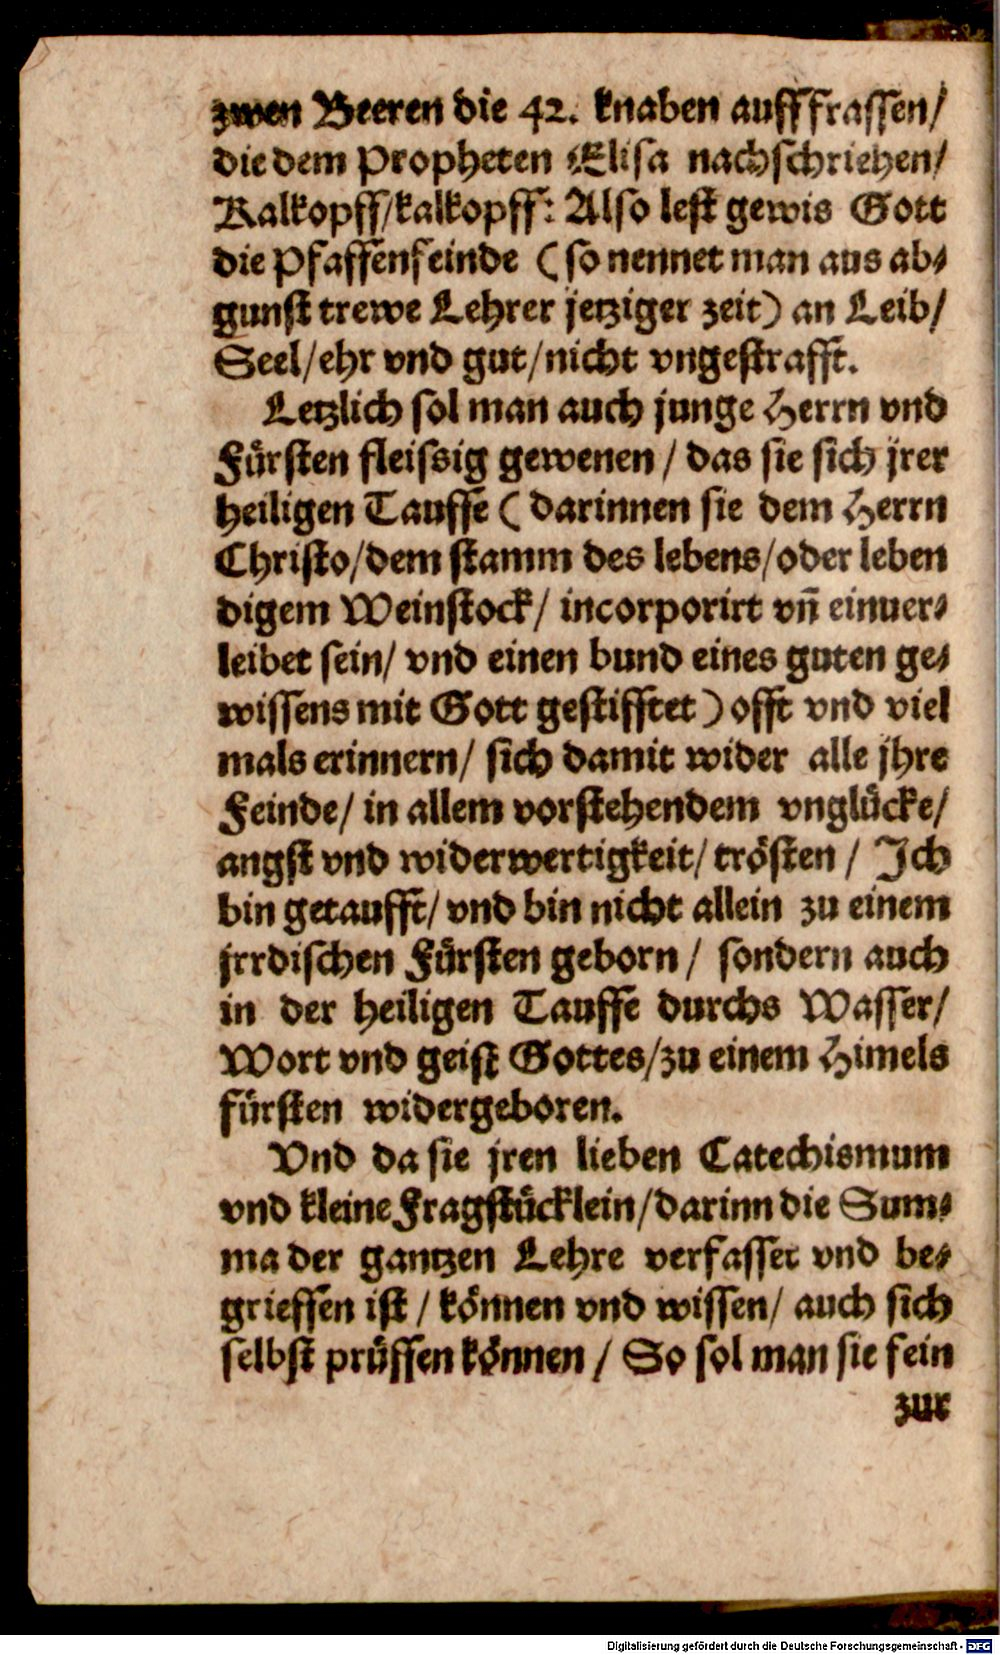 zwen Beeren die 42. knaben aufffrassen/
die dem Propheten Elisa nachschriehen/
Kalkopff/kalkopff: Also lest gewis Gott
die Pfaffenfeinde (so nennet man aus ab-
gunst trewe Lehrer jetziger zeit) an Leib/
Seel/ehr vnd gut/nicht vngestrafft.
Letzlich sol man auch junge Herrn vnd
Fürsten fleissig gewenen / das sie sich jrer
heiligen Tauffe (darinnen sie dem Herrn
Christo/dem stamm des lebens/oder leben
digem Weinstock/ incorporirt vn̄ einuer-
leibet sein/ vnd einen bund eines guten ge-
wissens mit Gott gestifftet) offt vnd viel
mals erinnern/ sich damit wider alle jhre
Feinde/ in allem vorstehendem vnglücke/
angst vnd widerwertigkeit/ trösten / Ich
bin getaufft/ vnd bin nicht allein zu einem
jrrdischen Fürsten geborn / sondern auch
in der heiligen Tauffe durchs Wasser/
Wort vnd geist Gottes/zu einem Himels
fürsten widergeboren.
Vnd da sie jren lieben Catechismum
vnd kleine Fragstücklein/darinn die Sum-
ma der gantzen Lehre verfasset vnd be-
grieffen ist / können vnd wissen/ auch sich
selbst prüffen können / So sol man sie fein
zur
Digitalisierung gefördert durch die Deutsche Forschungsgemeinschaft - DFG